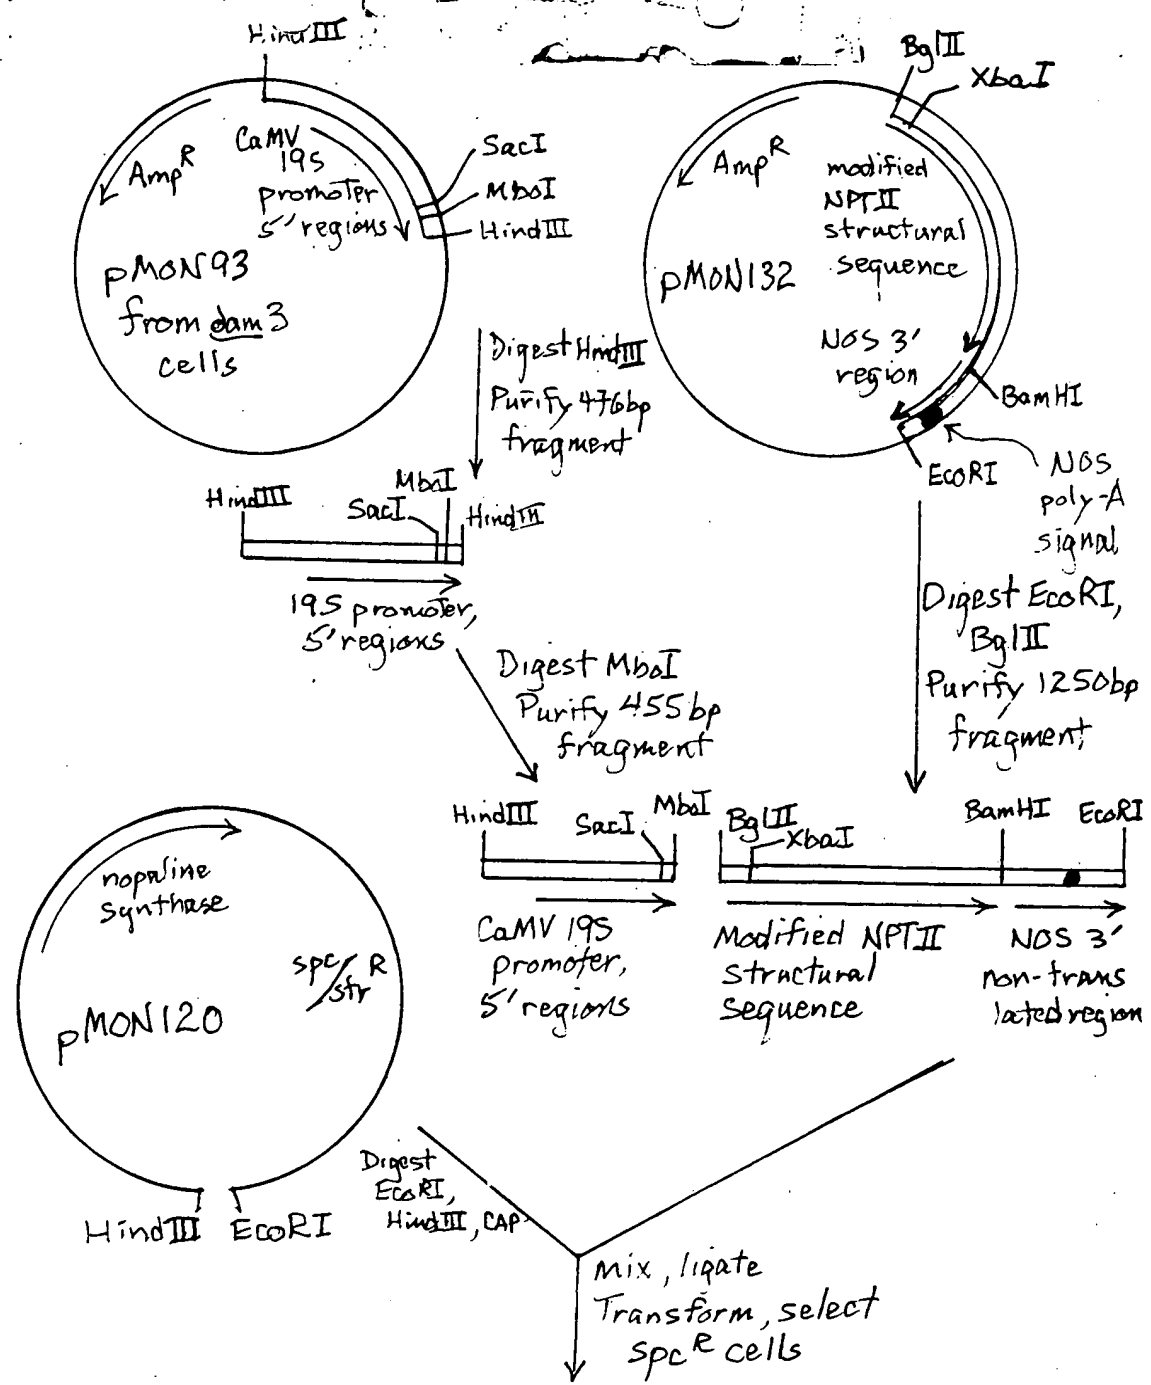 HindIII
CaMV
19S
promoter
5' regions
Amp^R
SacI
MboI
HindIII
pMON93
from dam3
cells
BglII
XbaI
Amp^R
modified
NPTII
structural
sequence
pMON132
NOS 3'
region
BamHI
EcoRI
NOS
poly-A
signal
Digest HindIII
Purify 476bp
fragment
HindIII
MboI
SacI
HindIII
19S promoter,
5' regions
Digest MboI
Purify 455bp
fragment
Digest EcoRI,
BglII
Purify 1250bp
fragment
HindIII
SacI
MboI
BglII
XbaI
BamHI
EcoRI
CaMV 19S
promoter,
5' regions
Modified NPTII
structural
sequence
NOS 3'
non-trans
lated region
nopaline
synthase
spc/str R
pMON120
HindIII EcoRI
Digest
EcoRI,
HindIII, CAP
Mix, ligate
Transform, select
spc^R cells